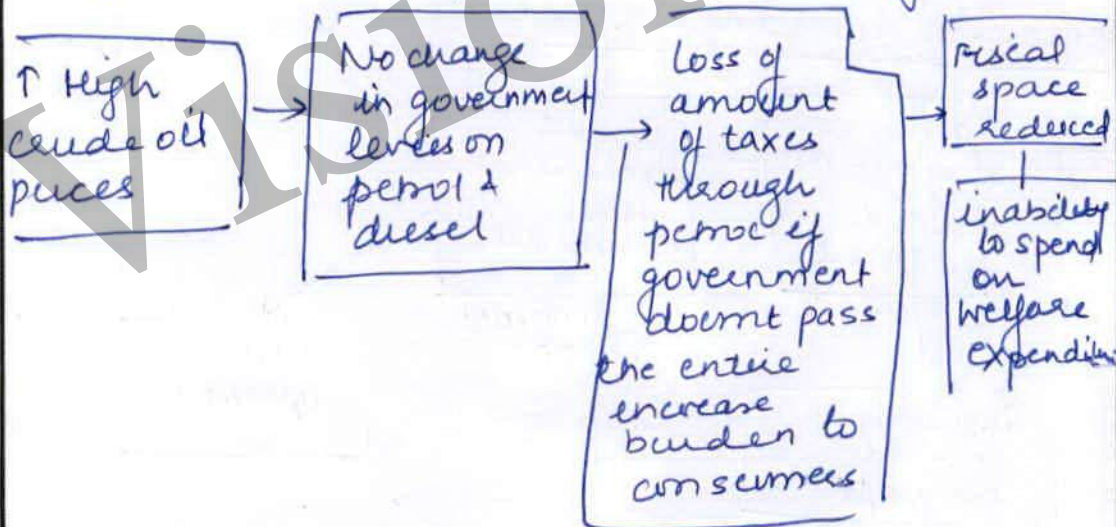 ↑ High
crude oil
prices
No change
in government
levies on
petrol &
diesel
Loss of
amount
of taxes
through
petrol if
government
doesnt pass
the entire
increase
burden to
consumers
Fiscal
space
reduced
inability
to spend
on
welfare
expenditure
Vision